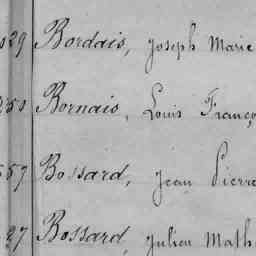 29 Bordais, Joseph Marie
250 Bornais, Louis Franço
557 Bossard, Jean Pierre
27 Bossard, Julien Math